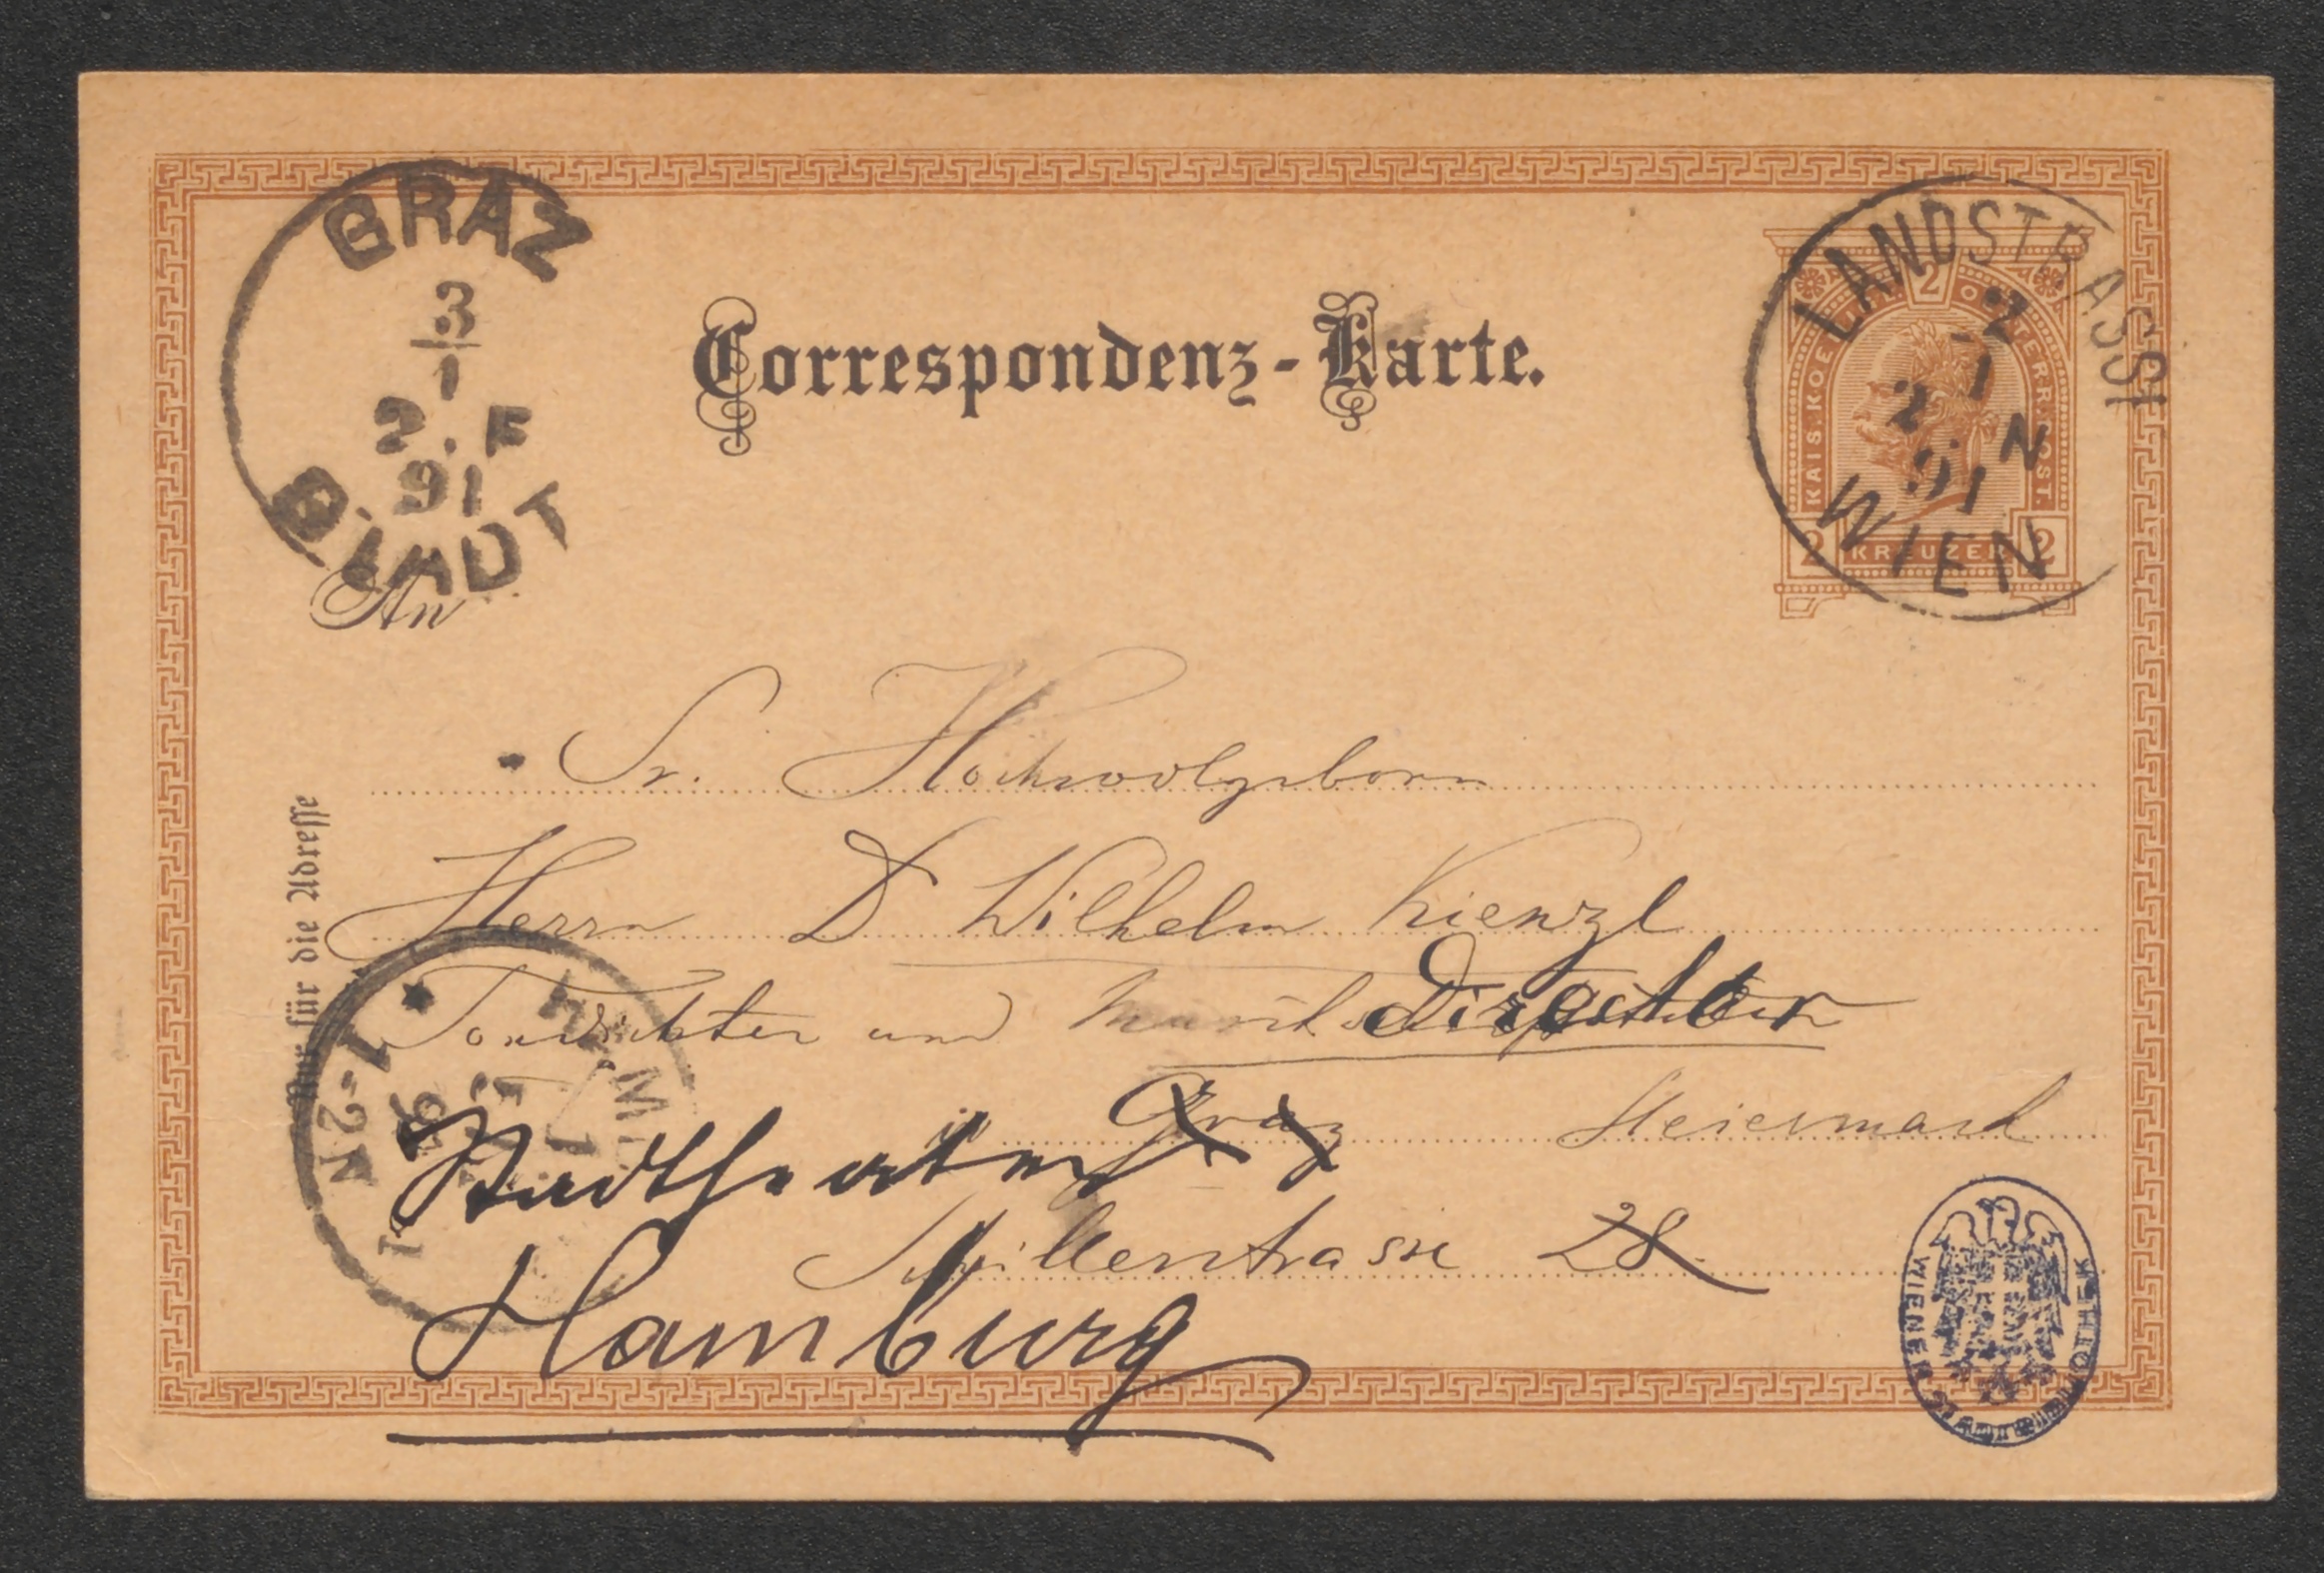 GRAZ
3
1
2. F
91
STADT
Correspondenz-Karte.
KAIS. KOE
2
KREUZER
2 2
LANDSTRASSE
2
1
2. N
91
WIEN
An
Nur für die Adresse
Sr. Hochwolgeborn
Herrn Dr Wilhelm Kienzl
Tondichter und
Director
in Graz Steiermark
Stadttheater
Schillerstrasse 28
Hamburg
1-2N
WIENER STADTBIBLIOTHEK